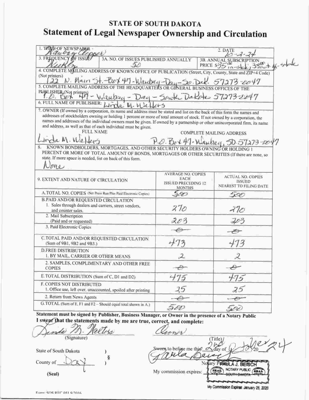 STATE OF SOUTH DAKOTA
Statement of Legal Newspaper Ownership and Circulation
1. TITLE OF NEWSPAPER
2. DATE
3. FREQUENCY OF ISSUE
3A. NO. OF ISSUES PUBLISHED ANNUALLY
50
3B. ANNUAL SUBSCRIPTION PRICE
4. COMPLETE MAILING ADDRESS OF KNOWN OFFICE OF PUBLICATION (Street, City, County, State and ZIP+4 Code)
(Not printer)
122 N. Main St. - Box 47 - Waubay - Day - So. Dak 57273-0047
5. COMPLETE MAILING ADDRESS OF THE HEADQUARTERS OR GENERAL BUSINESS OFFICES OF THE
P.O. Box 47 - Waubay - Day - South Dakota 57273-0047
6. FULL NAME OF PUBLISHER: Linda M. Walters
7. OWNER (If owned by a corporation, its name and address must be stated and list on the back of this form the names and
addresses of stockholders owning or holding 1 percent or more of total amount of stock. If not owned by a corporation, the
names and addresses of the individual owners must be given. If owned by a partnership or other unincorporated firm, its name
and address, as well as that of each individual must be given.
FULL NAME
COMPLETE MAILING ADDRESS
Linda M. Walters
P.O. Box 47 - Waubay, SD 57273-0047
8. KNOWN BONDHOLDERS, MORTGAGES, AND OTHER SECURITY HOLDERS OWNING OR HOLDING 1
PERCENT OR MORE OF TOTAL AMOUNT OF BONDS, MORTGAGES OR OTHER SECURITIES (If there are none, so
state. If more space is needed, list on back of this form.
None
9. EXTENT AND NATURE OF CIRCULATION
AVERAGE NO. COPIES
EACH
ISSUE PRECEDING 12
MONTHS
ACTUAL NO. COPIES
ISSUED
NEAREST TO FILING DATE
A. TOTAL NO. COPIES
500
500
B. PAID AND/OR REQUESTED CIRCULATION
1. Sales through dealers and carriers, street vendors,
and counter sales.
270
270
2. Mail Subscription
(Paid and/or requested)
203
203
3. Paid Electronic Copies
C. TOTAL PAID AND/OR REQUESTED CIRCULATION
(Sum of 9B1, 9B2 and 9B3.)
473
473
D. FREE DISTRIBUTION
1. BY MAIL, CARRIER OR OTHER MEANS
2
2
2. SAMPLES, COMPLIMENTARY AND OTHER FREE
COPIES
E. TOTAL DISTRIBUTION (Sum of C, D1 and D2)
475
475
F. COPIES NOT DISTRIBUTED
1. Office use, left over, unaccounted, spoiled after printing
25
25
2. Return from News Agents
G. TOTAL (Sum of E, F1 and F2 - Should equal total shown in A.)
500
500
Statement must be signed by Publisher, Business Manager, or Owner in the presence of a Notary Public
I swear that the statements made by me are true, correct, and complete:
Owner
(Signature)
(Title)
State of South Dakota
County of Day
(Seal)
My commission expires:
NOTARY PUBLIC